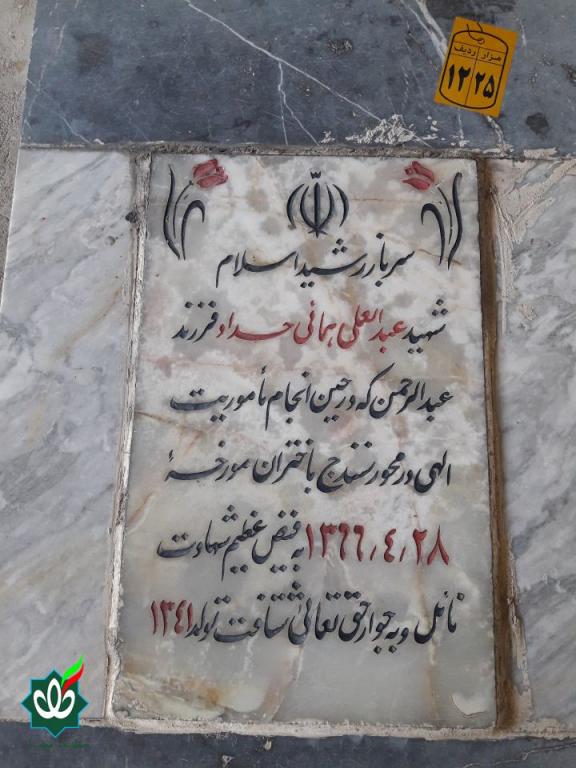 مزار ردیف
۱۲ ۲۵
سرباز رشید اسلام
شهید عبدالعلی همائی حداد فرزند
عبدالرحمن که در حین انجام مأموریت
الهی در محور سنندج باختران مورخهٔ
۱۳۶۶٫۴٫۲۸ به فیض عظیم شهادت
نائل و به جوار حق تعالی شتافت تولد ۱۳۴۱